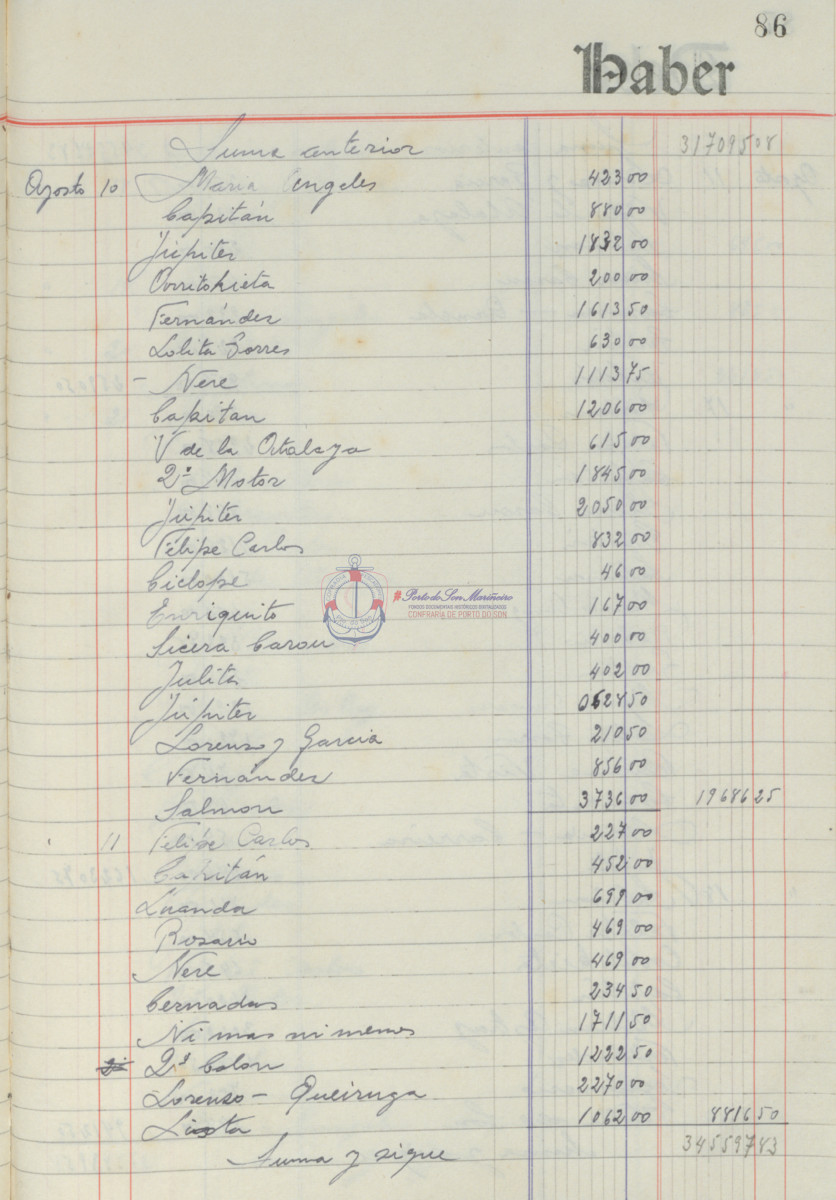 86
Haber
Suma anterior 31709508
Agosto 10 Maria Angeles 423 00
Capitán 880 00
Júpiter 1832 00
Orritokieta 200 00
Fernández 1613 50
Lolita Torres 630 00
- Nere 1113 75
Capitan 1206 00
V de la Atalaya 615 00
2º Motor 1845 00
Júpiter 2050 00
Felipe Carlos 832 00
Ciclope 46 00
#Porto do Son Mariñeiro
CONFRARIA DE PORTO DO SON
Enriquito 167 00
Sicira Carou 400 00
Julita 402 00
Júpiter 0628 50
Lorenzo y Garcia 210 50
Fernández 856 00
Salmon 3736 00 1968625
11 Felipe Carlos 227 00
Capitán 452 00
Luanda 699 00
Rosario 469 00
Nere 469 00
Cernadas 234 50
Ni mas ni menos 1711 50
2º Colon 1222 50
Lorenzo - Queiruga 2270 00
Lista 1062 00 881650
Suma y sigue 34559783